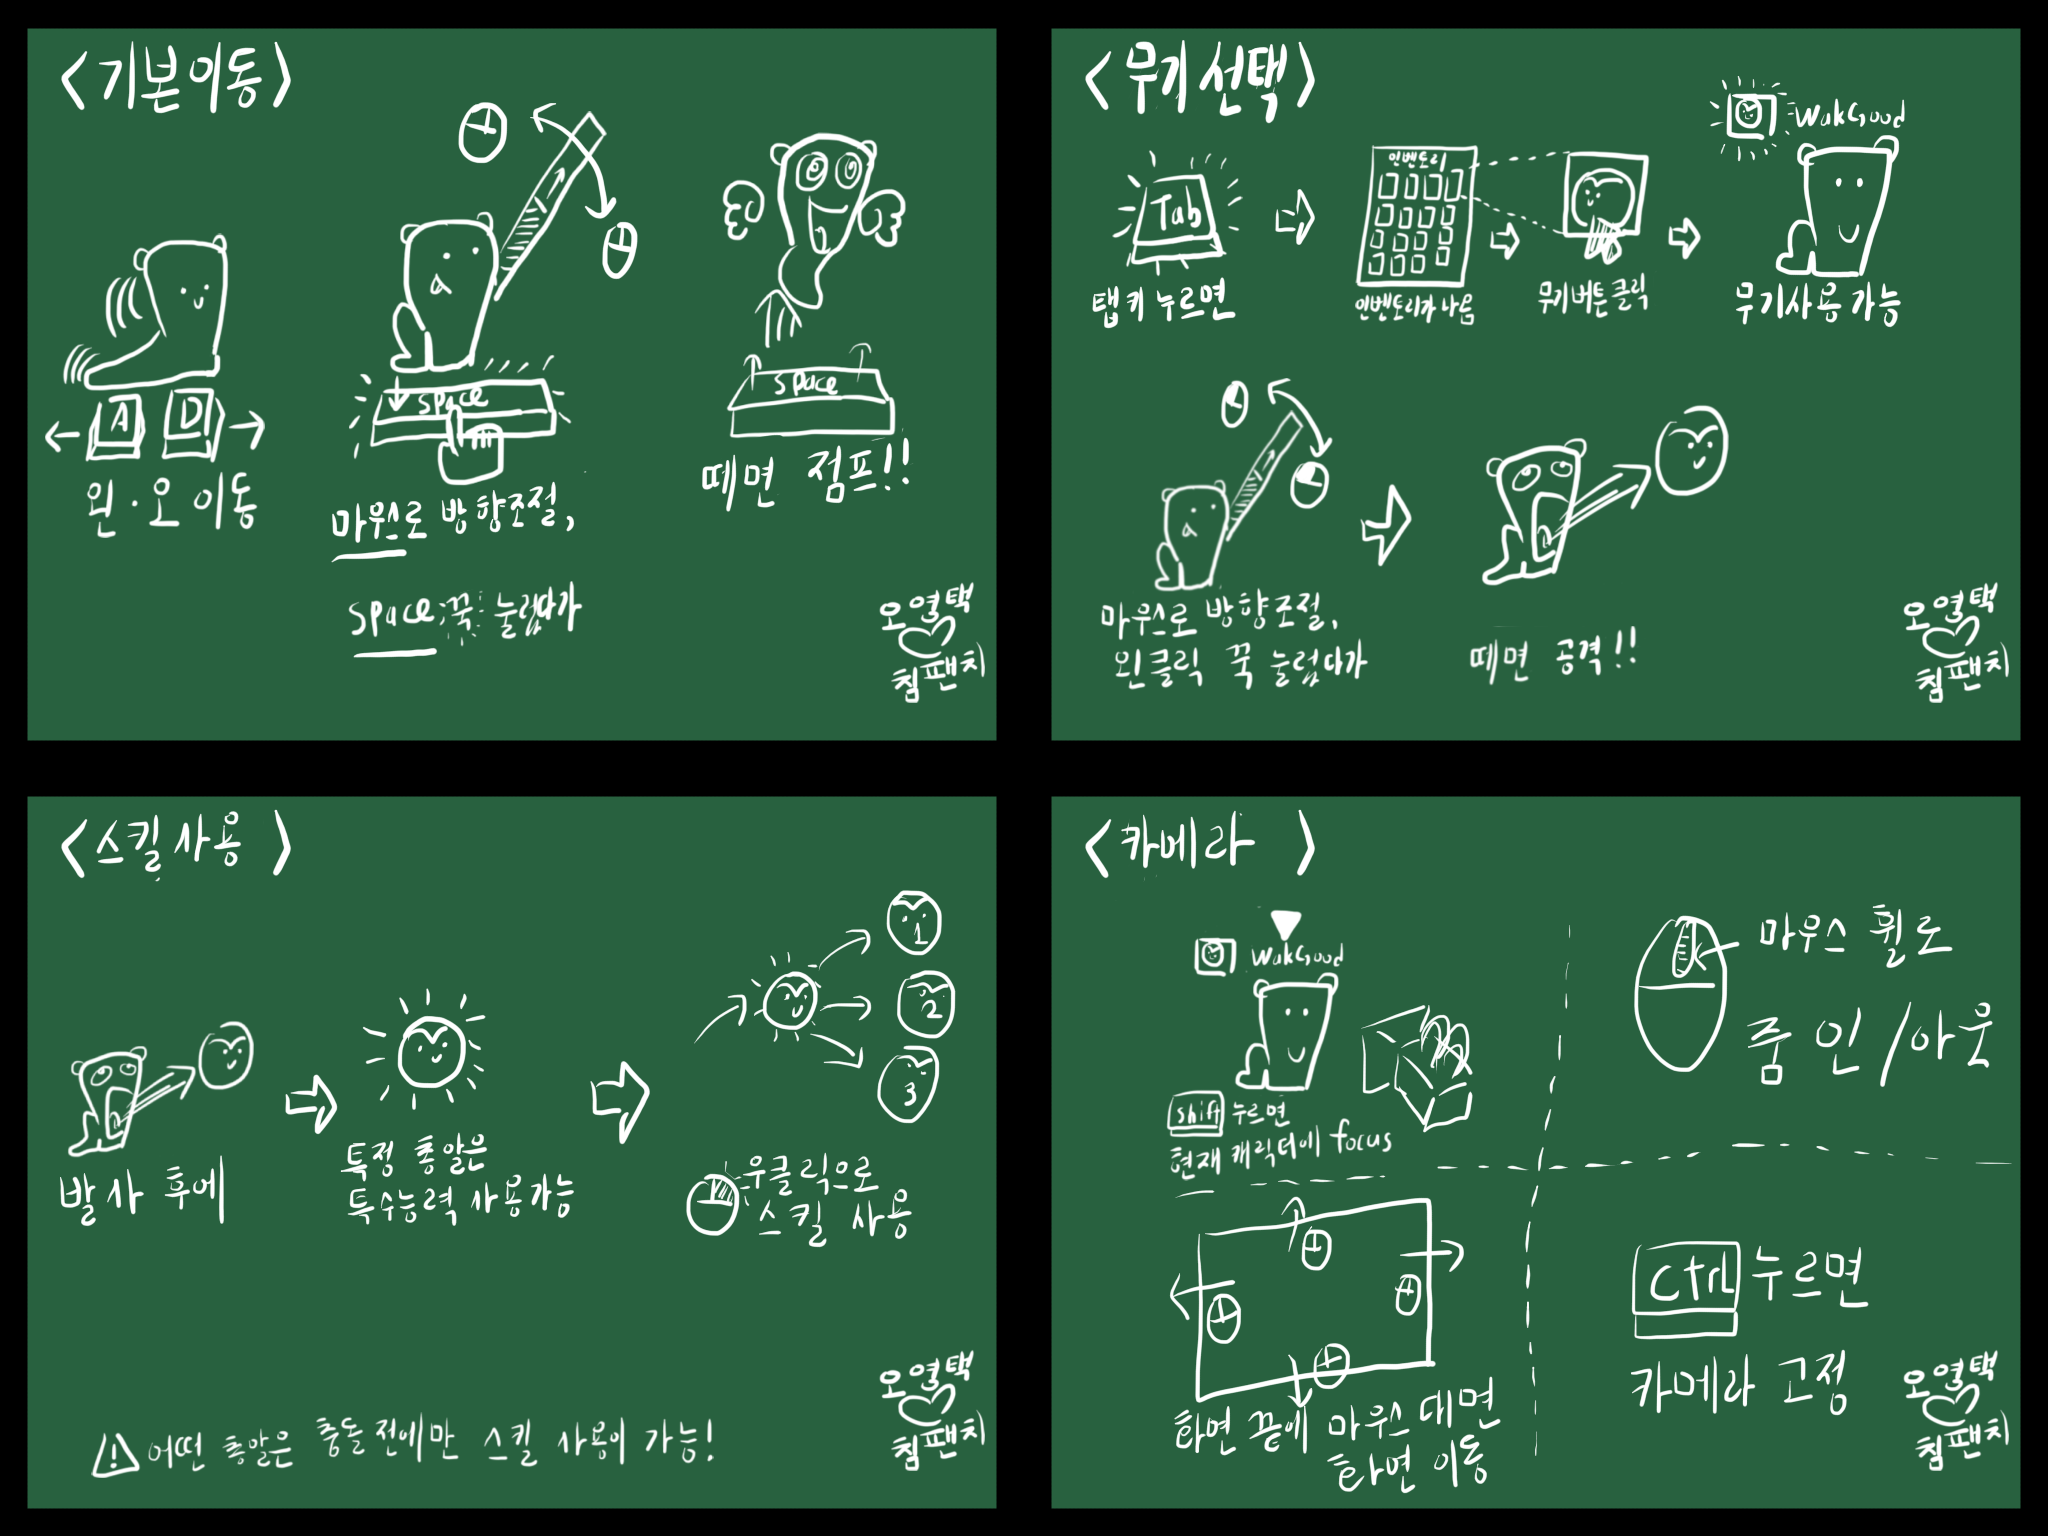 <기본이동>
A D
왼·오 이동
space
마우스로 방향조절,
space 꾹 눌렀다가
space
떼면 점프!!
오영택
침팬치
<무기선택>
Tab
탭키 누르면
인벤토리
인벤토리가 나옴
무기버튼클릭
WakGood
무기사용가능
마우스로 방향조절,
왼클릭 꾹 눌렀다가
떼면 공격!!
오영택
침팬치
<스킬사용>
발사 후에
특정 총알은
특수능력 사용가능
1
2
3
우클릭으로
스킬 사용
! 어떤 총알은 충돌전에만 스킬 사용이 가능!
오영택
침팬치
<카메라>
WakGood
shift 누르면
현재 캐릭터에 focus
마우스 휠로
줌 인/아웃
화면 끝에 마우스 대면
화면 이동
Ctrl 누르면
카메라 고정
오영택
침팬치